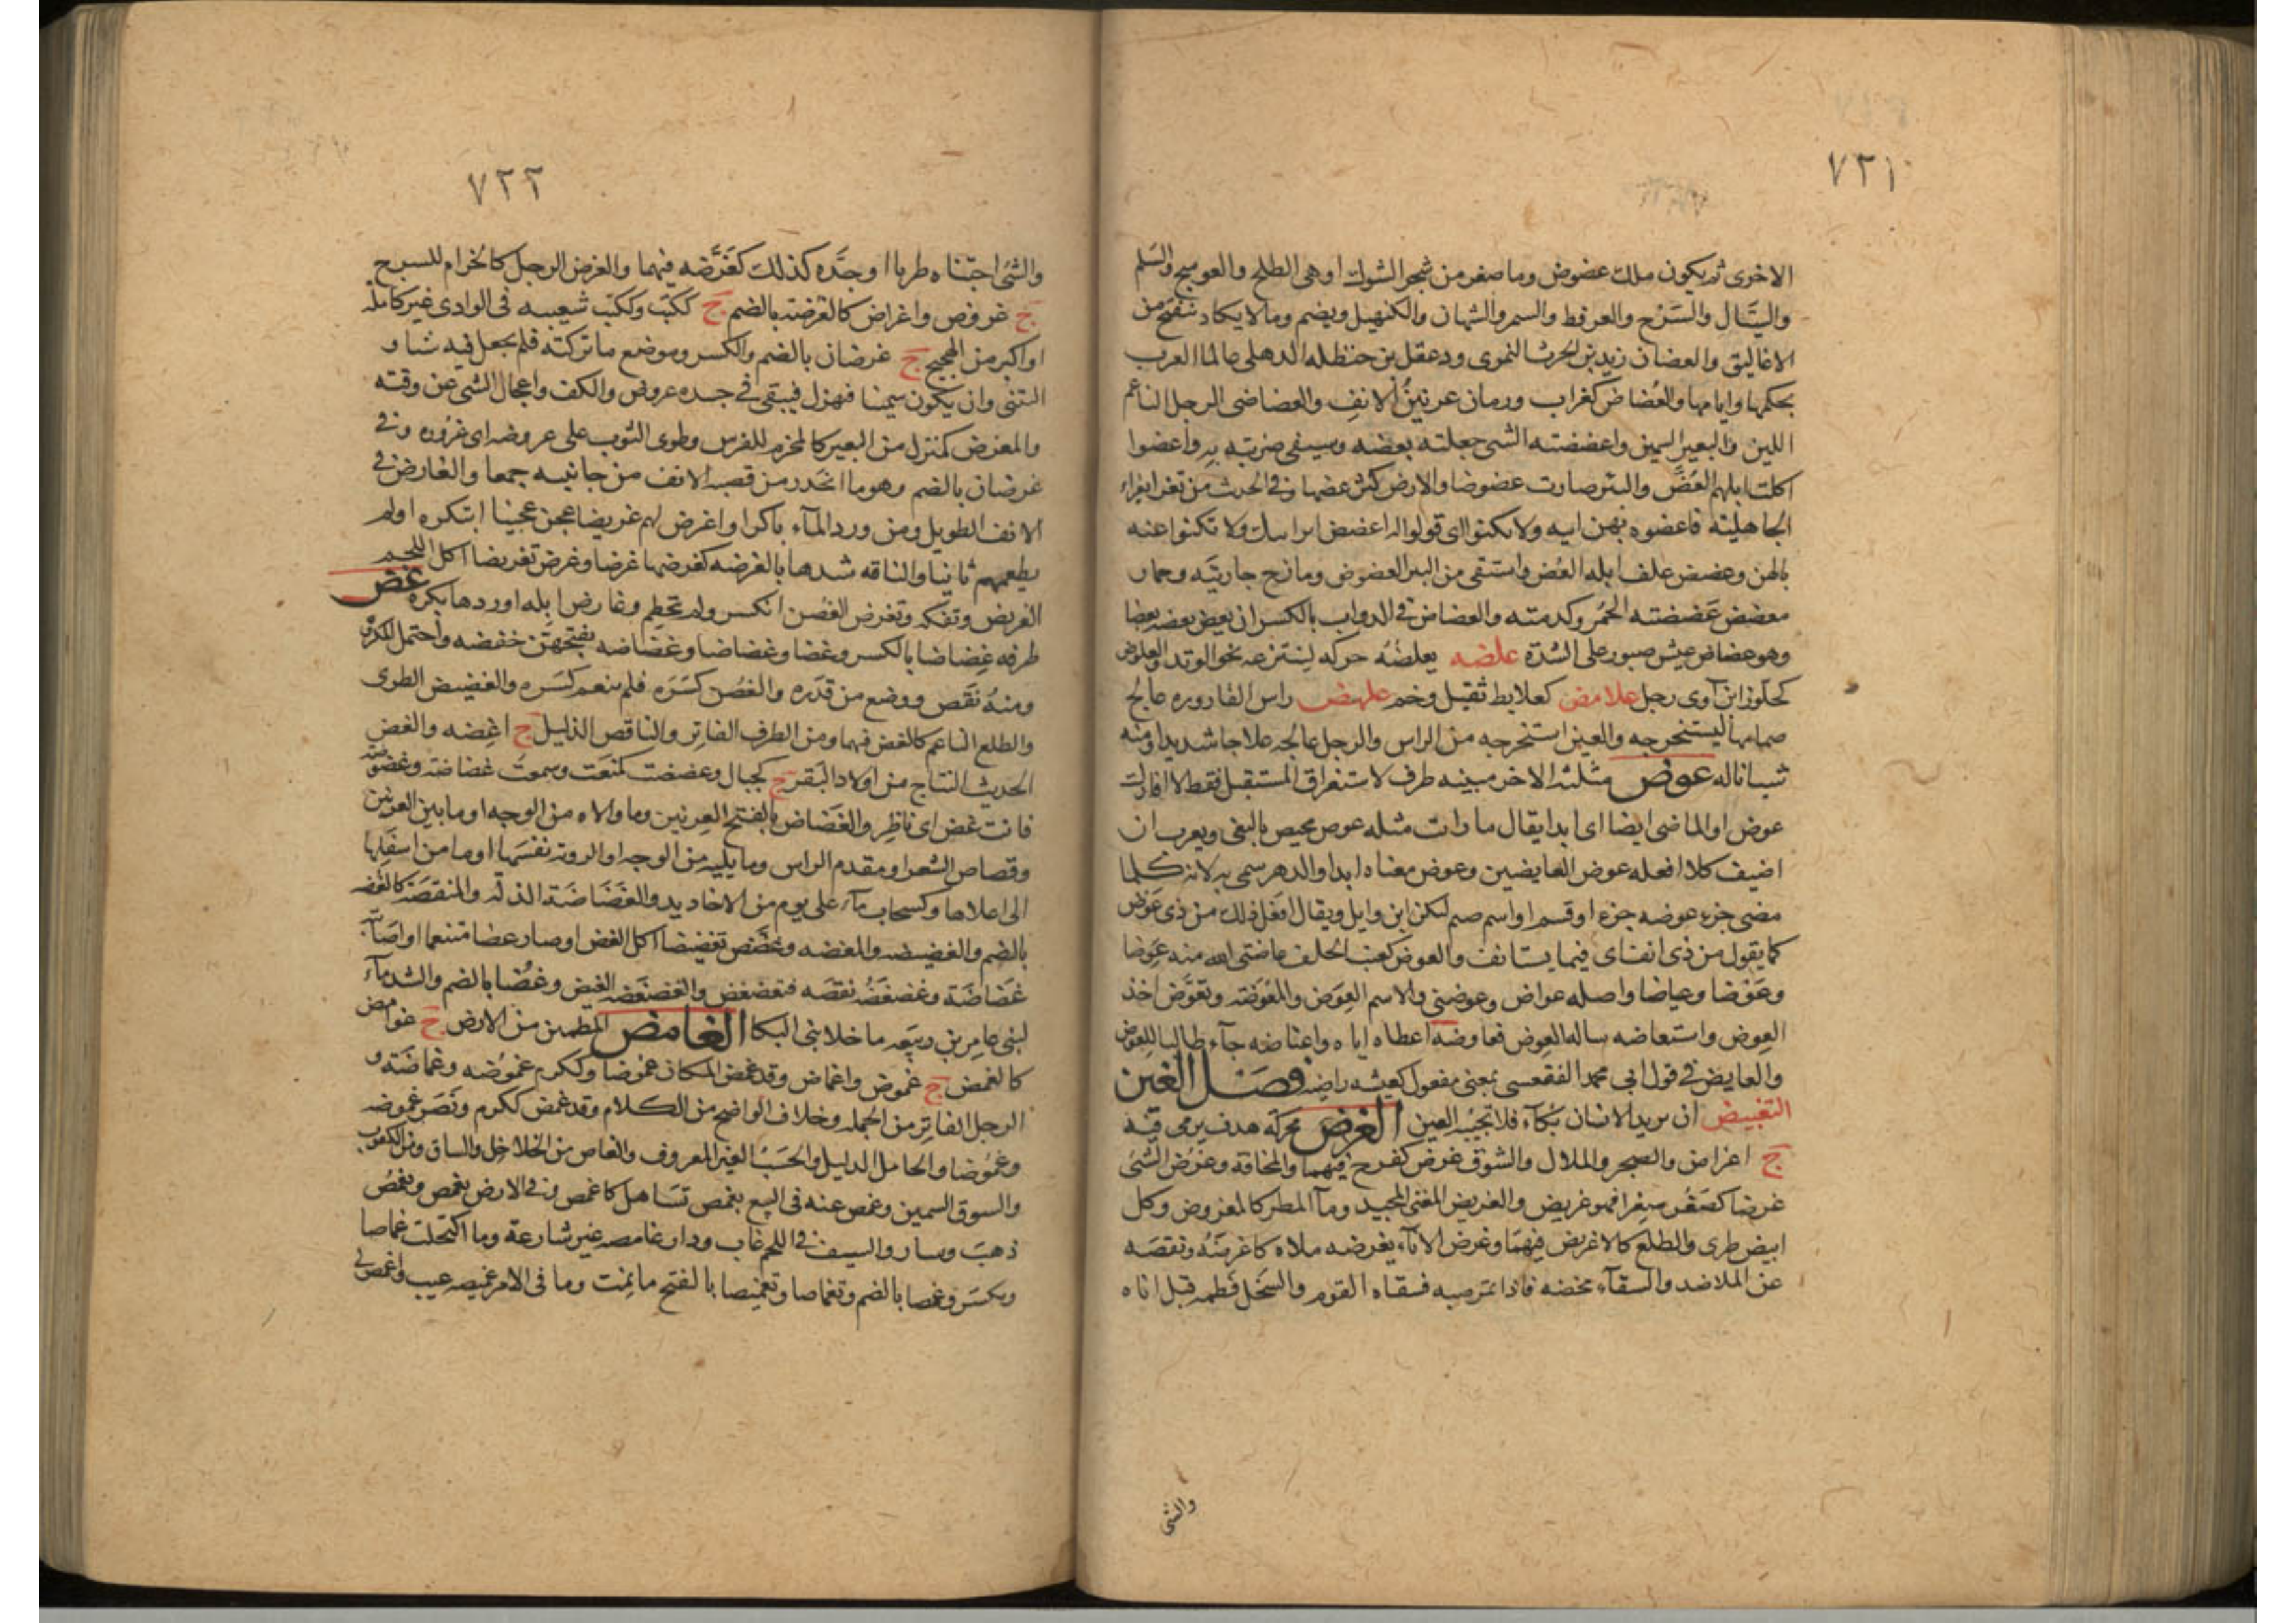 ٧٢١
الاخرى ثم يكون ملك عضوض وما صغر من شجر الشوك او هى الطلح والعوسج والسلم
والسيال والسرح والعرفط والسمر والشبهان والكنهبل ويضم وما لا يكاد ينفتح من
الاغاليق والعضان زيد بن الحرث النمرى ودغفل بن حنظله الذهلى عالما العرب
بحكمها وايامها والعُضاض كغراب ورمان عرنين الانف والعضاضى الرجل الناعم
اللين والبعير السمين واعضضته الشى جعلته يعضه وسيفى ضربته به واعضوا
اكلت ابلهم العُضّ والبئر صارت عضوضا والارض كثر عضها وفى الحديث من تعزا بعزاء
الجاهلية فاعضوه بهن ابيه ولا تكنوا اى قولوا له اعضض اير ابيك ولا تكنوا عنه
بالهن وعضض علف ابله العُض واستقى من البير العضوض ومازح جاريته وحمار
معضض عَضضته الحُمُر وكدمته والعضاض فى الدواب بالكسر ان يعض بعضه بعضا
وهو عضاض عيش صبور على الشدة علضه يعلضُه حركه لينتزعه نحو الوتد والعلوض
كجلوز ابن آوى رجل علامض كعلابط ثقيل وخم علهض راس القاروره عالج
صمامها ليستخرجه والعين استخرجه من الراس والرجل عالجه علاجا شديدا ومنه
شيا ناله عوض مثلثة الاخر مبنيه ظرف لاستغراق المستقبل فقط لا افارقك
عوض او الماضى ايضا اى ابدا يقال ما رايت مثله عوض مختص بالنفى ويعرب ان
اضيف كلا افعله عوض العايضين وعوض معناه ابدا والدهر سمى به لانه كلما
مضى جزء عوضه جزء او قسم او اسم صنم لبكر ابن وايل ويقال افعل ذلك من ذى عَوْض
كما يقول من ذى انف اى فيما يستانف والعوض كعنب الخلف عاضنى الله منه عِوَضا
وعَوْضا وعياضا واصله عواض وعوضنى والاسم العِوَض والمَعُوضَة وتعوَّض اخذ
العِوض واستعاضه ساله العِوض فعاوضه اعطاه اياه واعتاضه جآء طالبا للعِوض
والعايض فى قول ابى محمد الفقعسى بمعنى مفعول كعيشه راضيه فصل الغين
التغييض ان يريد الانسان بُكآء فلا تجيبُه العين الغرض محركه هدف يرمى فيه
ج اغراض والضجر والملال والشوق غرض كفرح فيهما والمخافة وغرُض الشئ
غرضا كصَغُر صِغَرا فهو غريض والغريض المغنى المجيد ومآ المطر كالمغروض وكل
ابيض طرى والطلع كالاغريض فيهما وغرض الاناء يغرضه ملاه كاغرضَه ونقصَه
عن الملا ضد والسقآء مخضه فاذا ثمر صبه فسقاه القوم والسَخْل فَطَمه قبل اناه
والشى
٧٢٢
والشئ اجتناه طريا او جَدَّه كذلك كغَرَّضه فيهما والغرض للرجل كالحزام للسرج
ج غروض واغراض كالغرضة بالضم ج ككتب وكُكتُب شعيبه فى الوادى غير كامله
او اكبر من الهجيج ج غرضان بالضم والكسر وموضع ما تركته فلم يجعل فيه شيا و
التثنى وان يكون سمينا فهزل فيبقى فى جسده غروض والكف واعجال الشى عن وقته
والمغرض كمنزل من البعير كالمحزم للفرس وطوى الثوب على غروضه اى غُروره وفى
غرضان بالضم وهو ما انحدر من قصبه الانف من جانبيه جمعا والغارض فى
الانف الطويل ومن ورد المآء باكرا واغرض لهم غريضا عجن عجينا ابتكره ولم
يطعمهم ثانيا والناقه شدها بالغرضه كغرضها غرضا وغرض تغريضا اكل اللحم
الغريض وتفكه وتغرض الغُصن انكسر ولم يتحطم وغارض ابله اوردها بكره غض
طرفه غِضاضا بالكسر وغضا وغضاضا وغضاضه بفتحهن خفضه واحتمل المكروه
ومنه نقَص ووضع من قدَره والغُصن كسَرَه فلم ينعم كسَره والغضيض الطرى
والطلع الناعم كالغض فيهما ومن الطرف الفاتر والناقص الذليل ج اغِضه والغض
الحديث النتاج من اولاد البقر ج كجبال وغضضت كمنعَت وسمعتُ غضاضة وغضوضة
فانت غض اى ناظر والغَضاض بالفتح العرنين وما والاه من الوجه او ما بين العرنين
وقصاص الشعر او مقدم الراس وما يليه من الوجه او الروثه نفسها او ما من اسفلها
الى اعلاها وكسحاب مآء على يوم من الاخاديد والغَضَاضَة الذلة والمنقصَة كالغضه
بالضم والغضيضه والمغضه وغضَّض تغضيضا اكل الغض او صار غضا متنعما او اصابَته
غَضاضَة وغضغضَه نقصَه فتغضغض والغضغضه الغيض وغُضّا بالضم والشد مآء
لبنى عامر بن ربيعَه ما خلا بنى البكا الغامض المطمئن من الارض ج غوامض
كالغمض ج غموض واغماض وقد غمض المكان غمُوضا وككرم غمُوضه وغماضَة و
الرجل الفاتر من الحمله وخلاف الواضح من الكلام وقد غمض ككرم ونَصَر غموضه
وغمُوضا والخامل الذليل والحَسَبُ الغير المعروف والغاص من الخلاخل والساق ومن الكعوب
والسوق السمين وغمض عنه فى البيع يغمض تَسَاهل كاغمض وفى الارض يغمض ويغمُض
ذهبَ وسار والسيف فى اللحم غاب ودار غامضه غير شارعة وما اكتحلت غماضا
ويكسَر وغمضا بالضم وتغماضا وتغميضا بالفتح ما نِمت وما فى الامر غميضه عيب واغمض لى